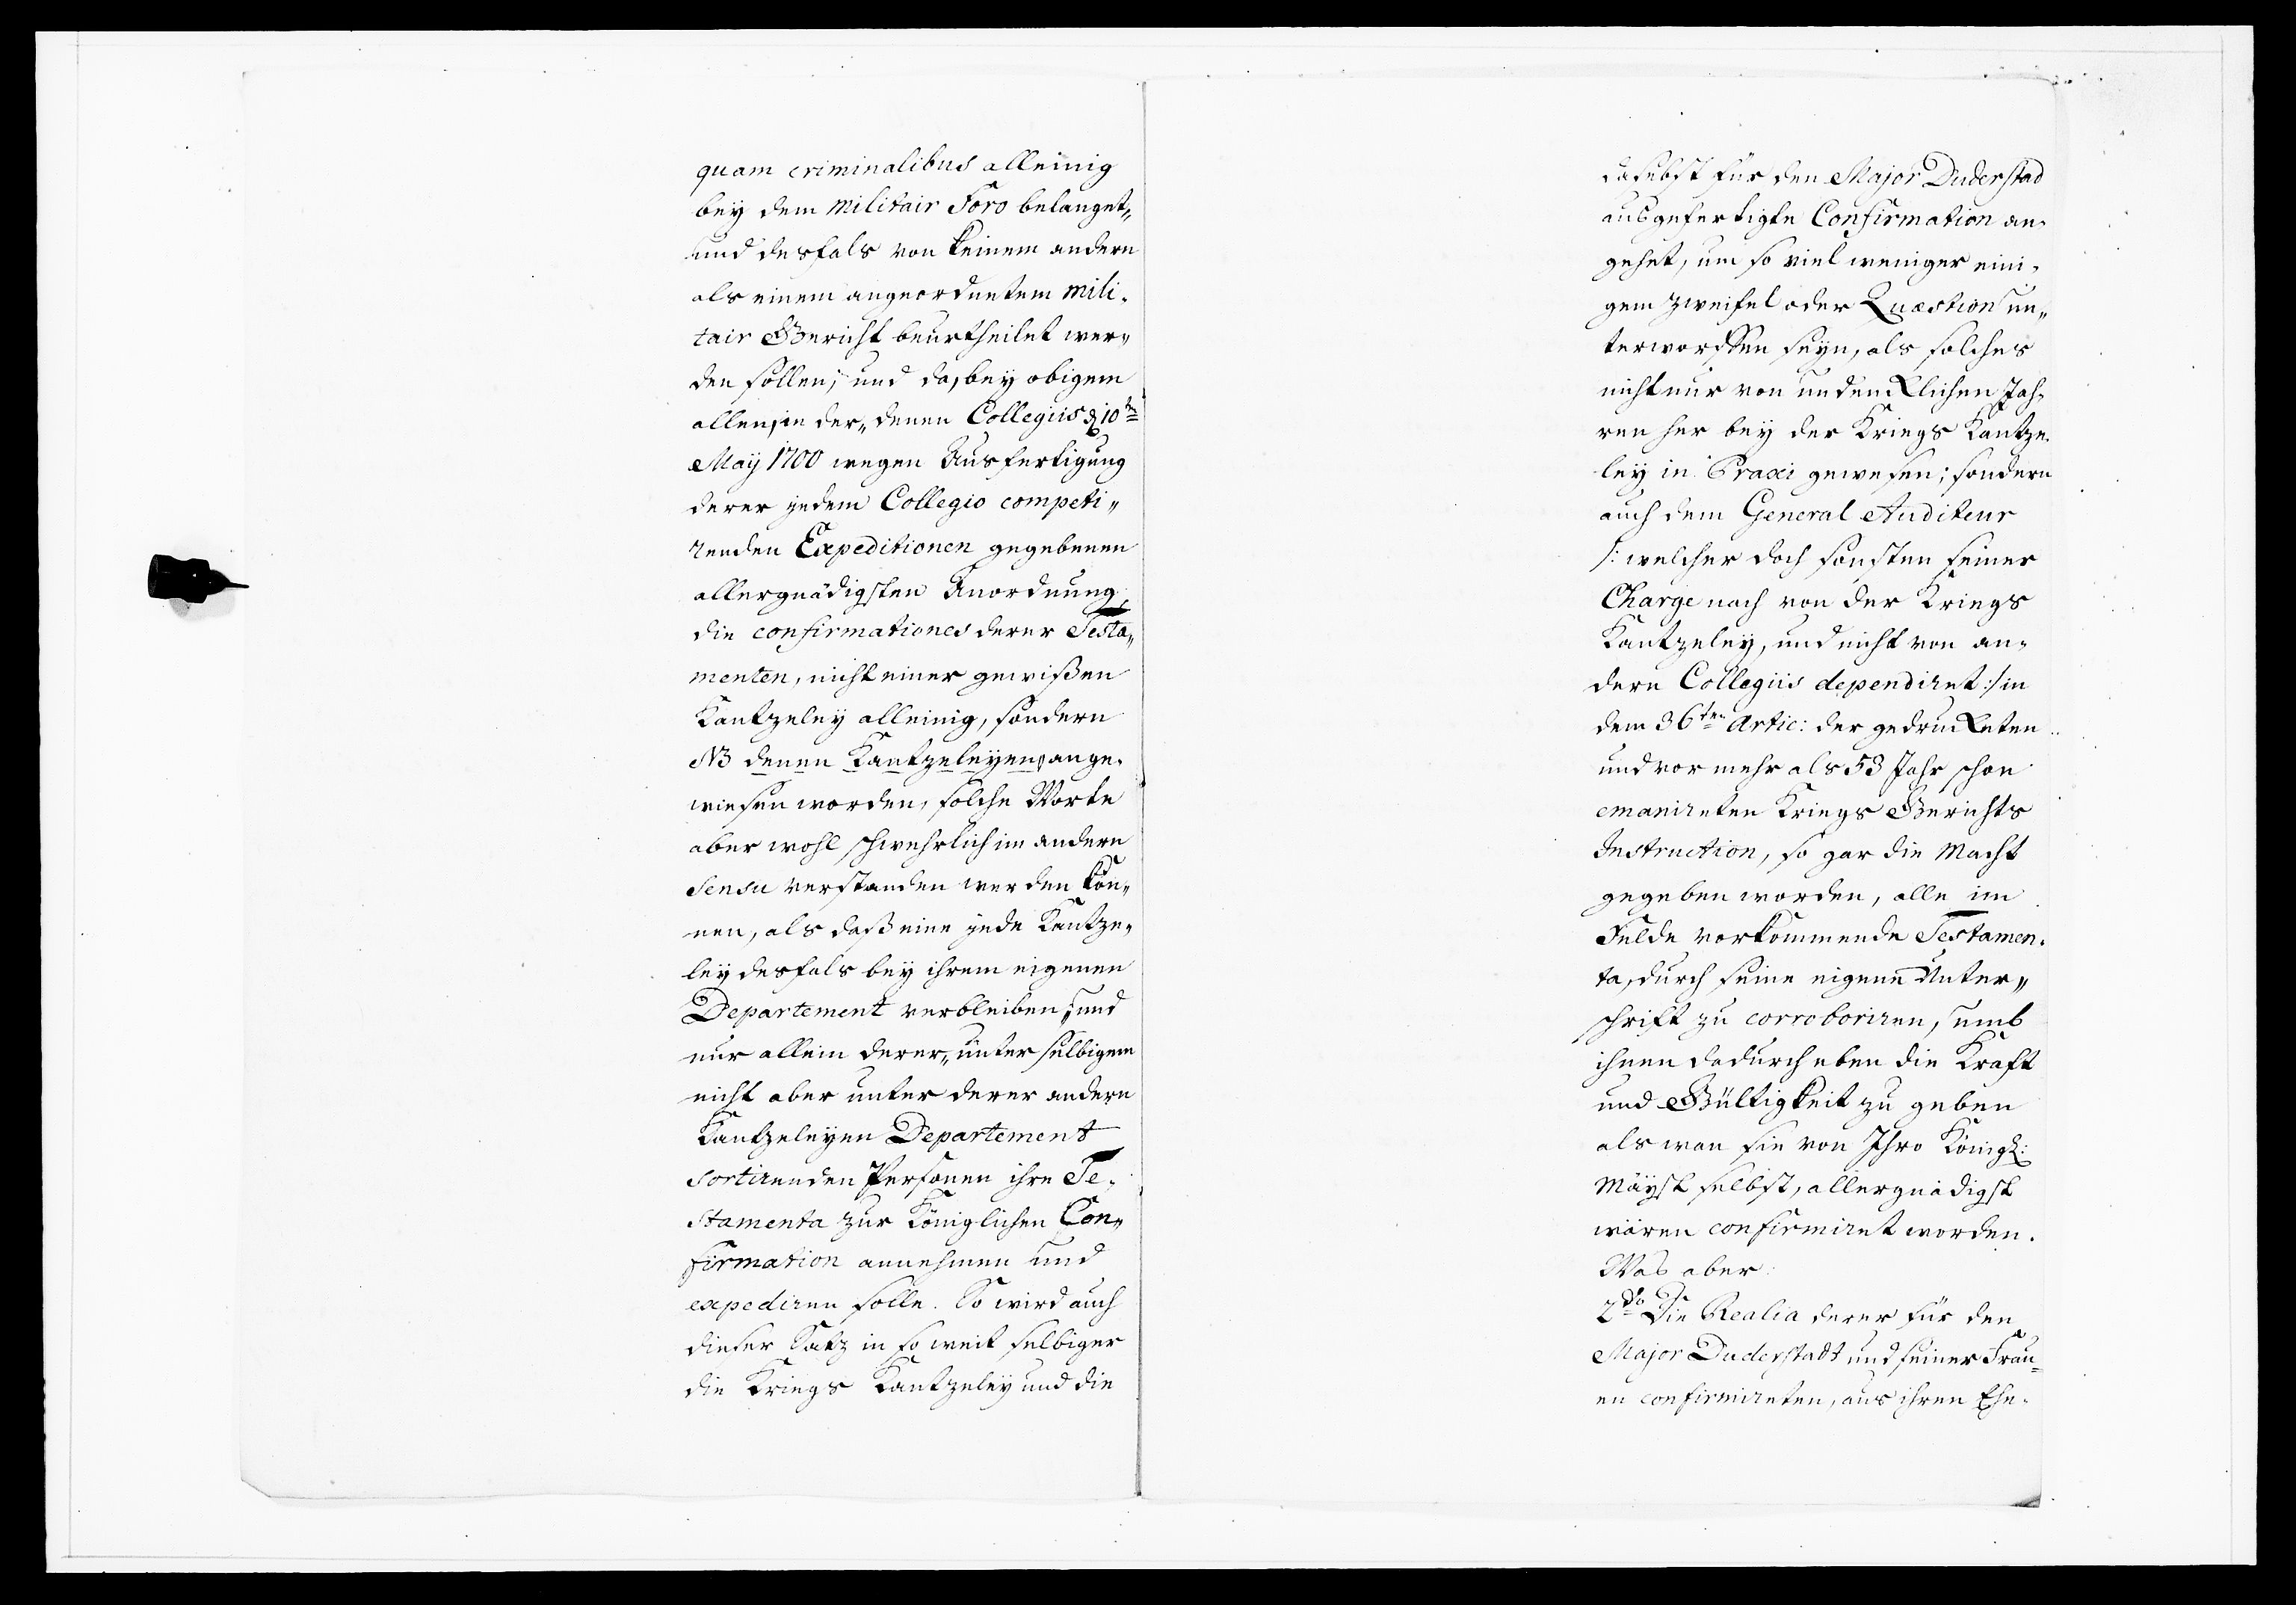 quam criminalibus alleinig
bey dem militair Foro belanget„
und desfals von keinem andern
als einem angeordnetem mili-
tair Gericht beurtheilet wer„
den sollen; und da, bey obigem
allen, in der„ denen Collegiis d 10ten
Maÿ 1700 wegen Ausfertigung
derer jedem Collegio competi„
renden Expeditionen gegebenen
allergnädigsten Anordnung,
die confirmationes derer Testa„
menten, nicht einer gewißen
Kantzeley alleinig, sondern
NB denen Kantzeleyen, ange-
wiesen worden, solche Worte
aber wohl schwehrlich im andern
Sensu verstanden werden kön„
nen, als daß eine jede Kantze„
ley desfals bey ihrem eigenen
Departement verbleiben, und
nur allein derer„ unter selbigem
nicht aber unter derer andern
Kantzeleyen Departement
sortirenden Personen ihre Te-
stamenta zur Königlichen Con„
firmation annehmen und
expediren solle. So wird auch
dieser Satz in so weit selbiger
die Kriegs Kantzeley und die
daselbst für den Major Duderstad
ausgefertigte Confirmation an-
gehet, um so viel weniger eini-
gem Zweifel oder Quæstion un„
terworffen seyn, als solches
nicht nur von undencklichen Jah-
ren her bey der Kriegs Kantze-
ley in Praxi gewesen; sondern
auch dem General Auditeur
/: welcher doch sonsten seiner
Charge nach von der Kriegs
Kantzeley, und nicht von an-
dern Collegiis dependiret :/ in
dem 36ten Artic: der gedruckten
und vor mehr als 53 Jahr schon
emanirten Kriegs Gerichts
Instruction, so gar die Macht
gegeben worden, alle im
Felde vorkommende Testamen-
ta, durch seine eigene Unter„
schrift zu corroboriren, umb
ihnen dadurch eben die Kraft
und Gültigkeit zu geben
als wan sie von Ihro Königl:
Mäyst selbst, allergnädigst
wären confirmiret worden.
Was aber
2do Die Realia derer für den
Major Duderstadt und seiner Frau-
en confirmireten, aus ihren Ehe-